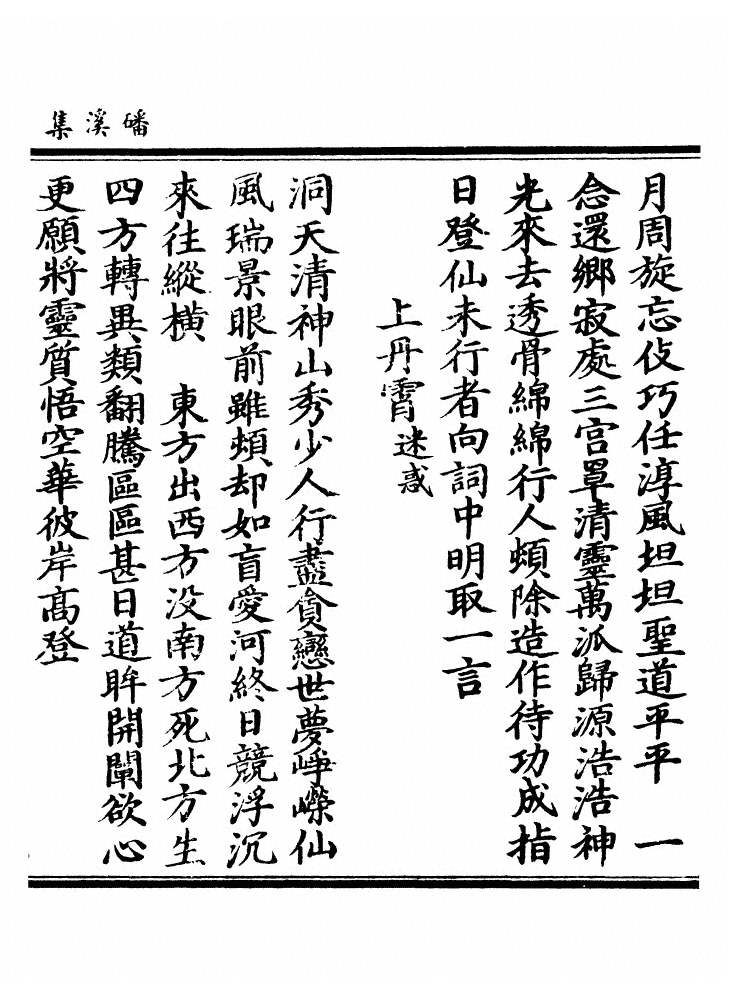 磻溪集
月周旋忘伎巧任淳風坦坦聖道平平　一
念還鄉寂處三宫罩清靈萬派歸源浩浩神
光來去透骨綿綿行人頓除造作待功成指
日登仙未行者向詞中明取一言
上丹霄迷惑
洞天清神山秀少人行盡貪戀世夢崢嶸仙
風瑞景眼前雖頓却如盲愛河終日競浮沉
來往縱横　東方出西方没南方死北方生
四方轉異類翻騰區區甚日道眸開闡欲心
更願將靈質悟空華彼岸高登